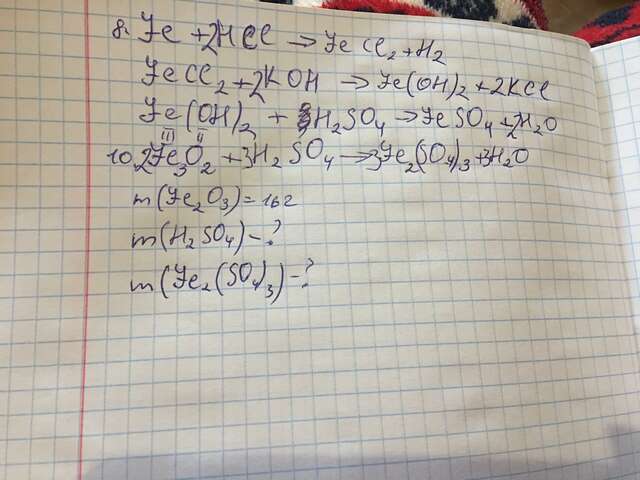 8. Fe + 2HCl → FeCl₂ + H₂
FeCl₂ + 2KOH → Fe(OH)₂ + 2KCl
Fe(OH)₂ + H₂SO₄ → FeSO₄ + 2H₂O
III II
10. 2Fe₃O₂ + 3H₂SO₄ → 3Fe₂(SO₄)₃ + 3H₂O
m(Fe₂O₃) = 16г
m(H₂SO₄) - ?
m(Fe₂(SO₄)₃) - ?